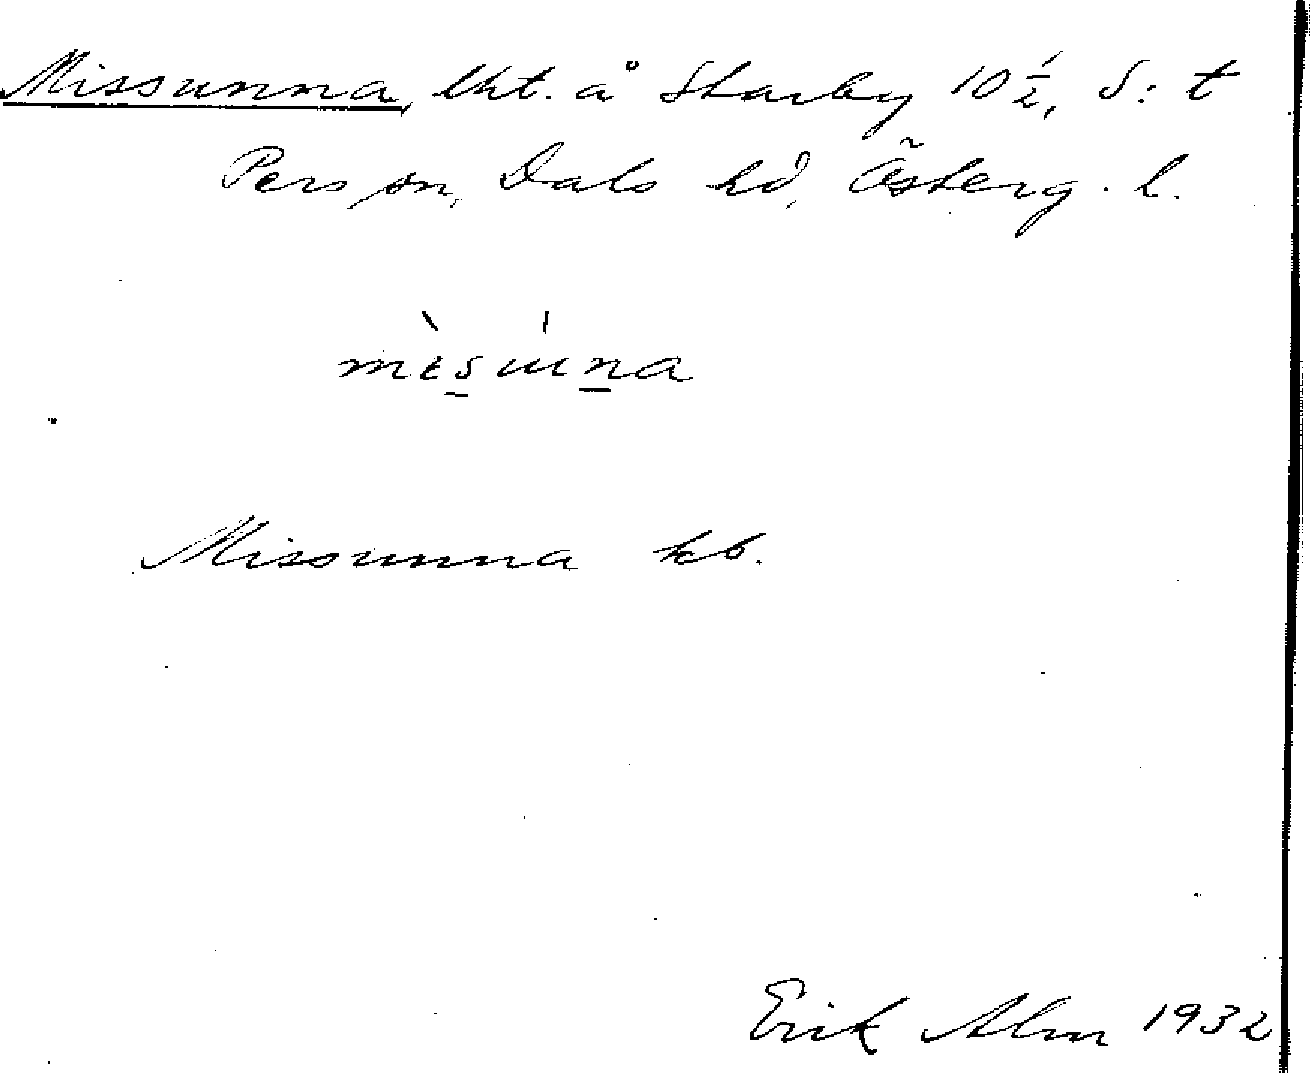 Missunna, lht. å Starby 10 ½, S:t
Pers sn, Dals hd, Österg. l.
mɩ̀su̍na
Missunna kb.
Erik Alm 1932